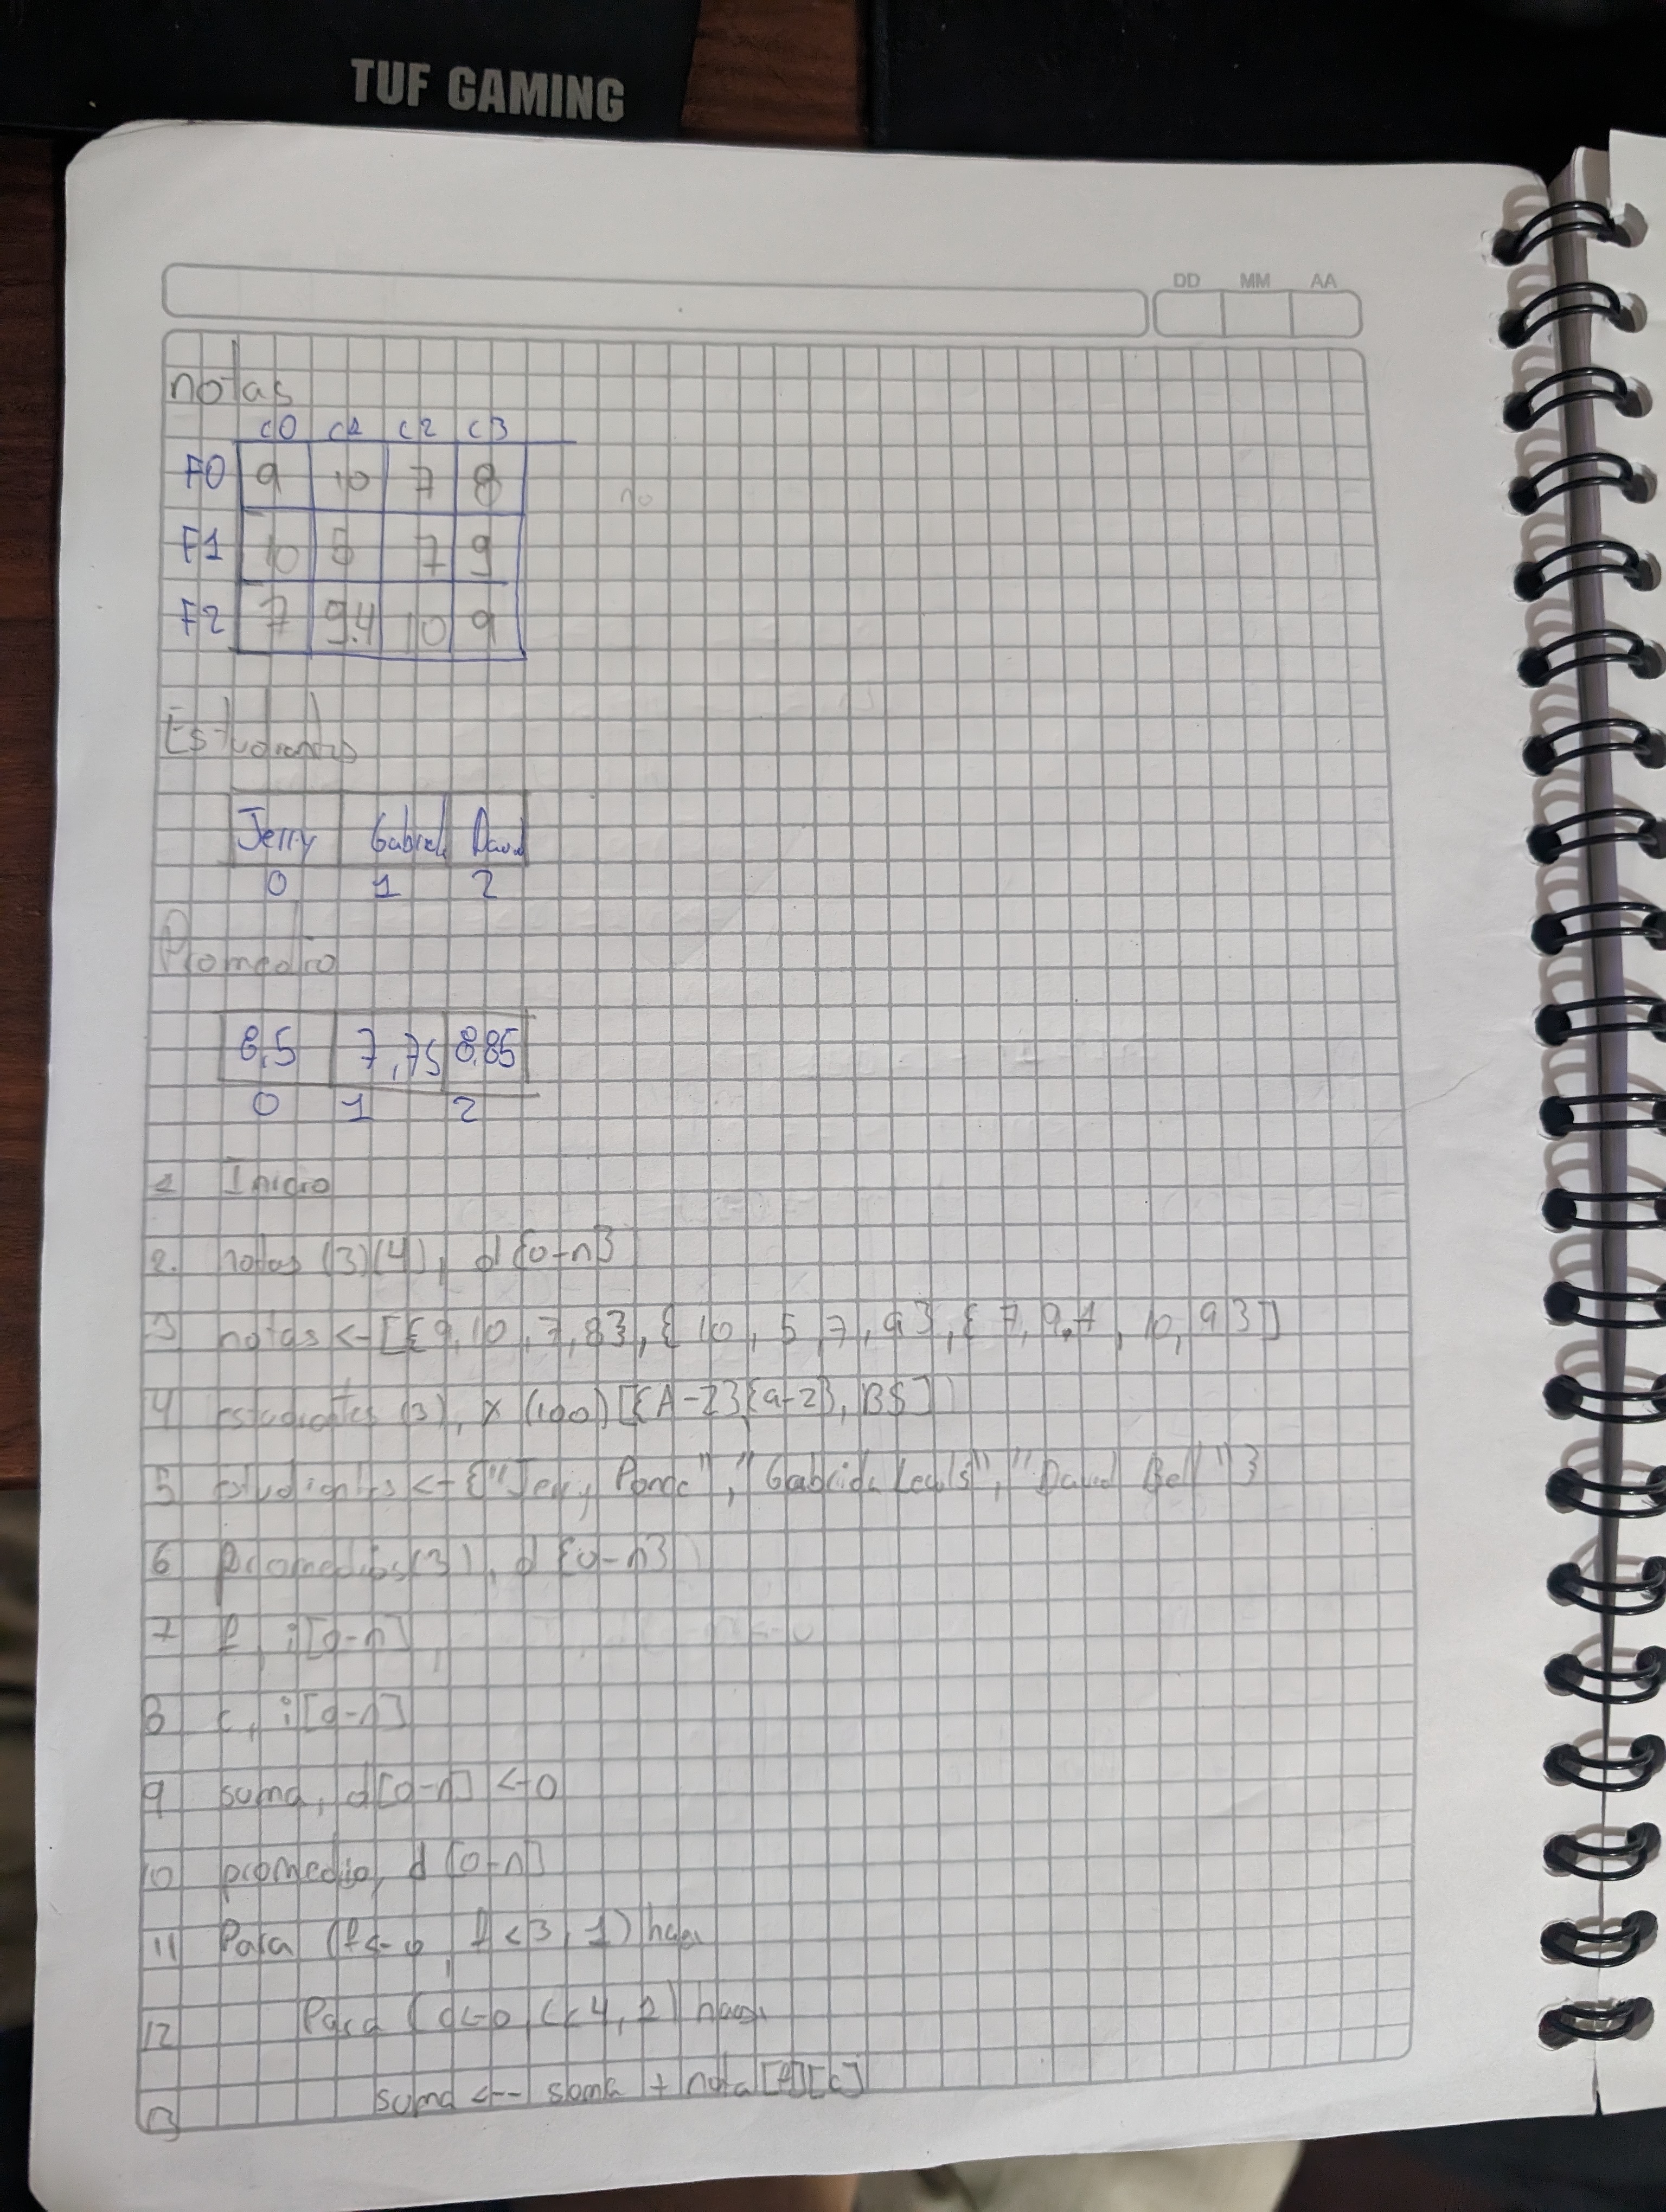 TUF GAMING
DD MM AA
notas
c0 c1 c2 c3
F0 9 10 7 8
no
F1 10 5 7 9
F2 7 9.4 10 9
Estudiantes
Jerry Gabriel David
0 1 2
Promedio
8,5 7,75 8.85
0 1 2
1 Inicio
2. notas (3)(4), d{0-n}
3 notas <- [{9,10,7,8},{10,5,7,9},{7,9,4,10,9}]
4 estudiantes (3), x (100) [{A-Z}{a-z}, B$]
5 estudiantes <- {"Jerry Ponce", "Gabriela", "David Bell"}
6 promedios(3), d {0-n}
7 f, i[0-n]
8 c, i[0-n]
9 suma, d[0-n] <-0
10 promedio, d [0-n]
11 Para (f<-0, f<3, 1) hacer
12 Para (c<-0, c<4, 1) hacer
13 suma <-- suma + nota[f][c]